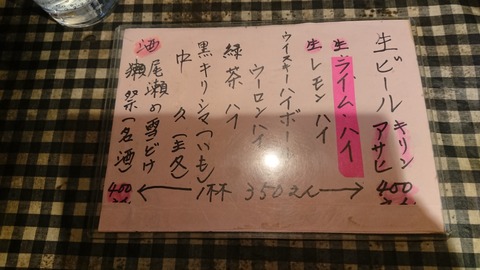 生ビール キリン アサヒ 400えん
生ライム・ハイ
生レモンハイ
ウイスキーハイボール
ウーロンハイ
緑茶ハイ
黒キリシマ(いも)
中々(麦)
酒 尾瀬の雪どけ
獺祭(名酒) 400えん
←1杯 350えん→